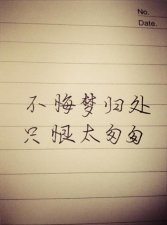 No.
Date.
不悔梦归处
只恨太匆匆